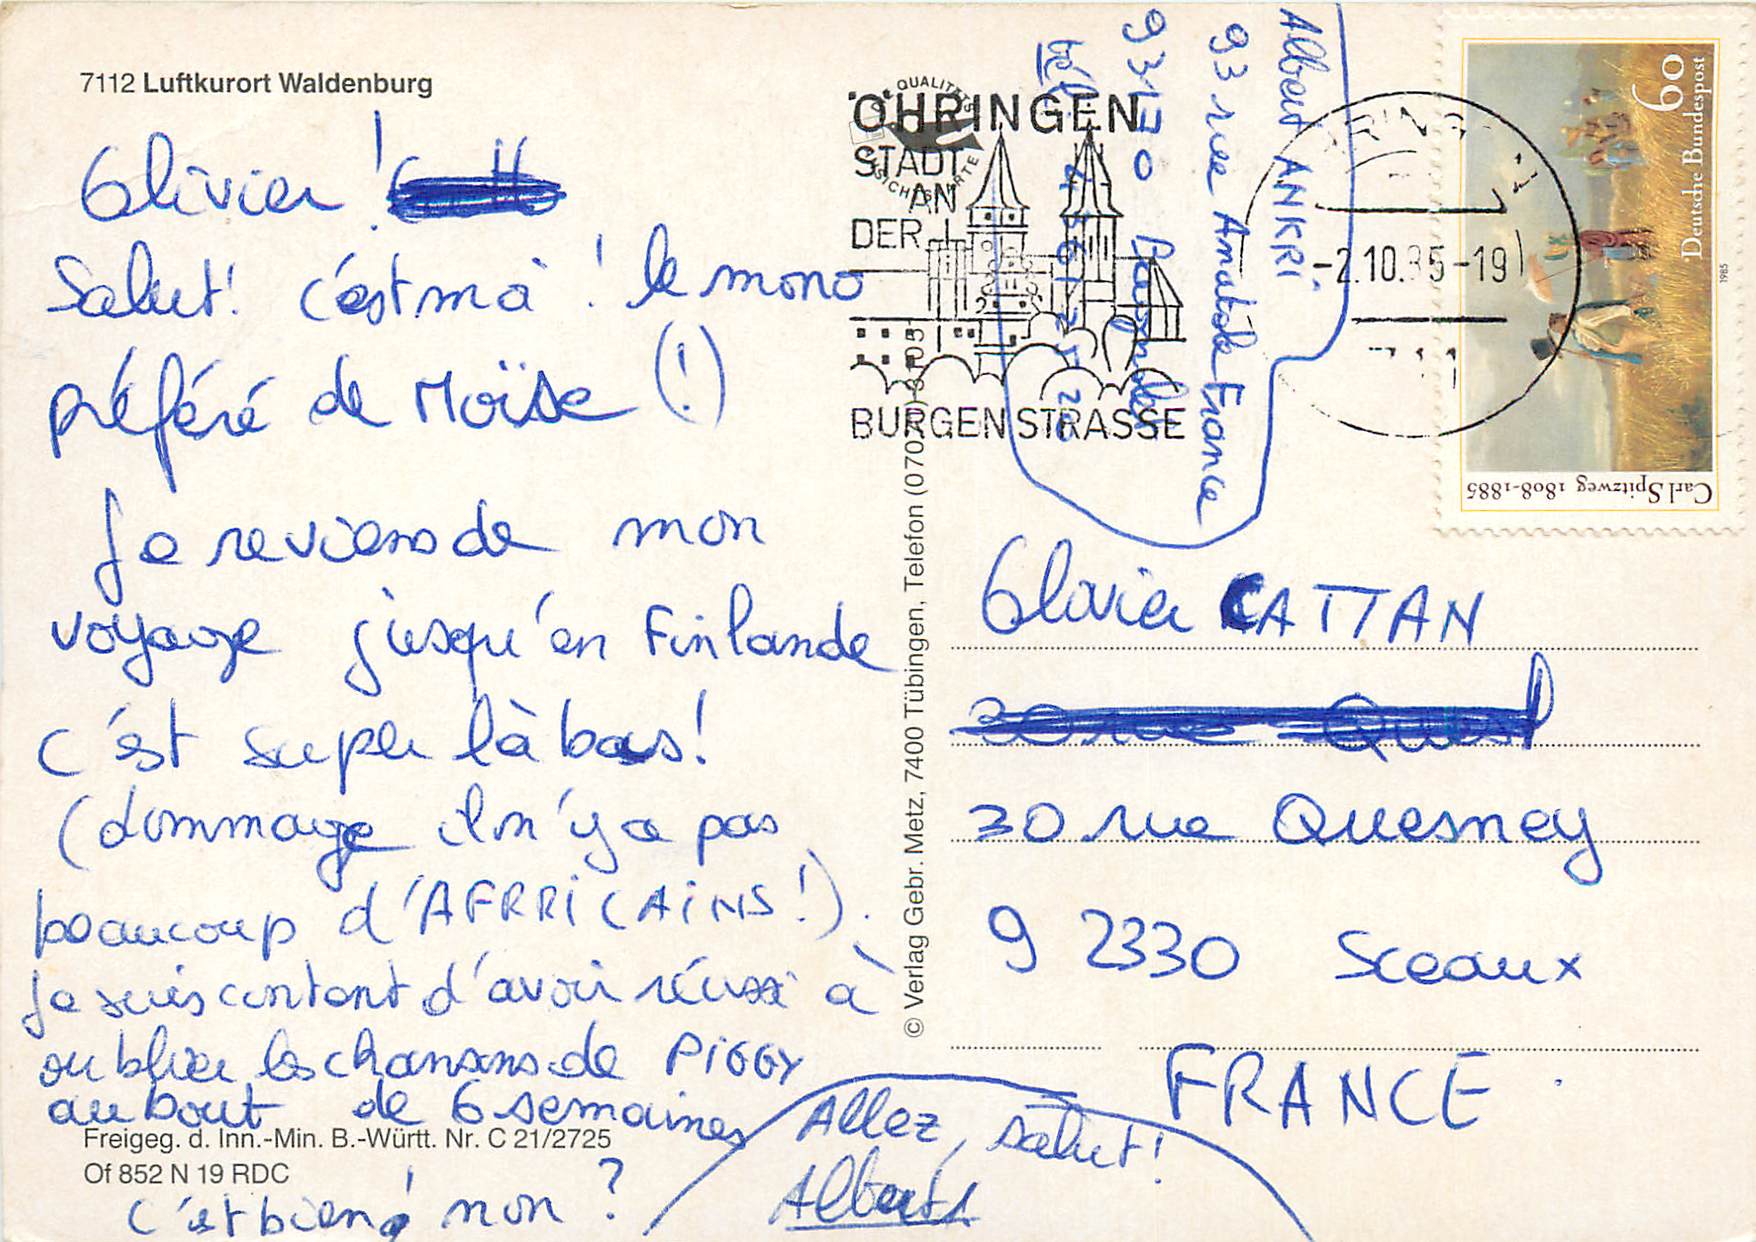 7112 Luftkurort Waldenburg
Olivier!
Salut! c'est moi! le mono
préféré de Moïse (!)
Je reviens de mon
voyage jusqu'en Finlande
c'est super là bas!
(dommage il n'y a pas
beaucoup d'AFRRICAINS!).
Je suis content d'avoir réussi à
oublier les chansons de PIGGY
au bout de 6 semaines
Freigeg. d. Inn.-Min. B.-Württ. Nr. C 21/2725
Of 852 N 19 RDC
c'est bien, non ?
Allez, salut!
Albert
© Verlag Gebr. Metz, 7400 Tübingen, Telefon (070
ÖHRINGEN
STADT
AN
DER
BURGENSTRASSE
-2.10.85-19
Albert ANKRI
93 rue Anatole France
93130
tél.
60
Deutsche Bundespost
1985
Carl Spitzweg 1808-1885
Olivier CATTAN
30 rue Quesney
92330 Sceaux
FRANCE